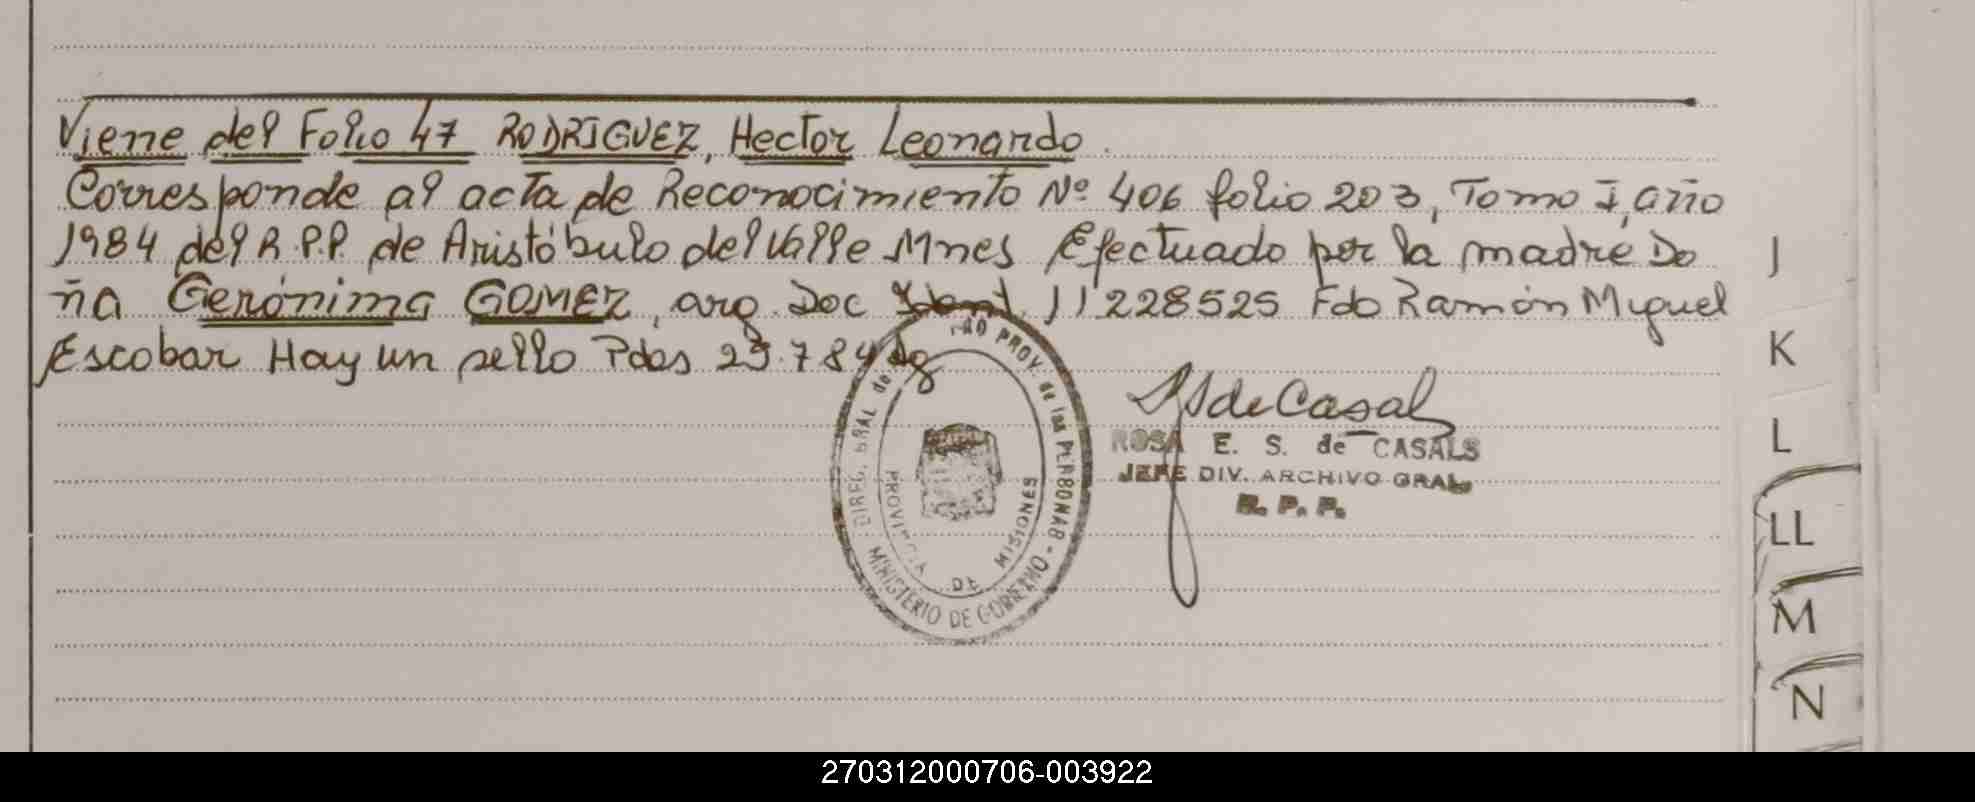 Viene del Folio 47 RODRIGUEZ, Hector Leonardo.
Corresponde al acta de Reconocimiento Nº 406 folio 203, Tomo I, año
1984 del R.P.P. de Aristóbulo del Valle Mnes Efectuado por la madre Do
ña Gerónima GOMEZ, arg. Doc Ident. 11'228525 Fdo Ramón Miguel
Escobar Hay un sello Pdas 25.7 84
PROV. de las PERSONAS - MINISTERIO DE GOBIERNO - DIREC. GRAL de
PROVINCIA DE MISIONES
de Casal
ROSA E. S. de CASALS
JEFE DIV. ARCHIVO GRAL.
R. P. P.
J
K
L
LL
M
N
270312000706-003922